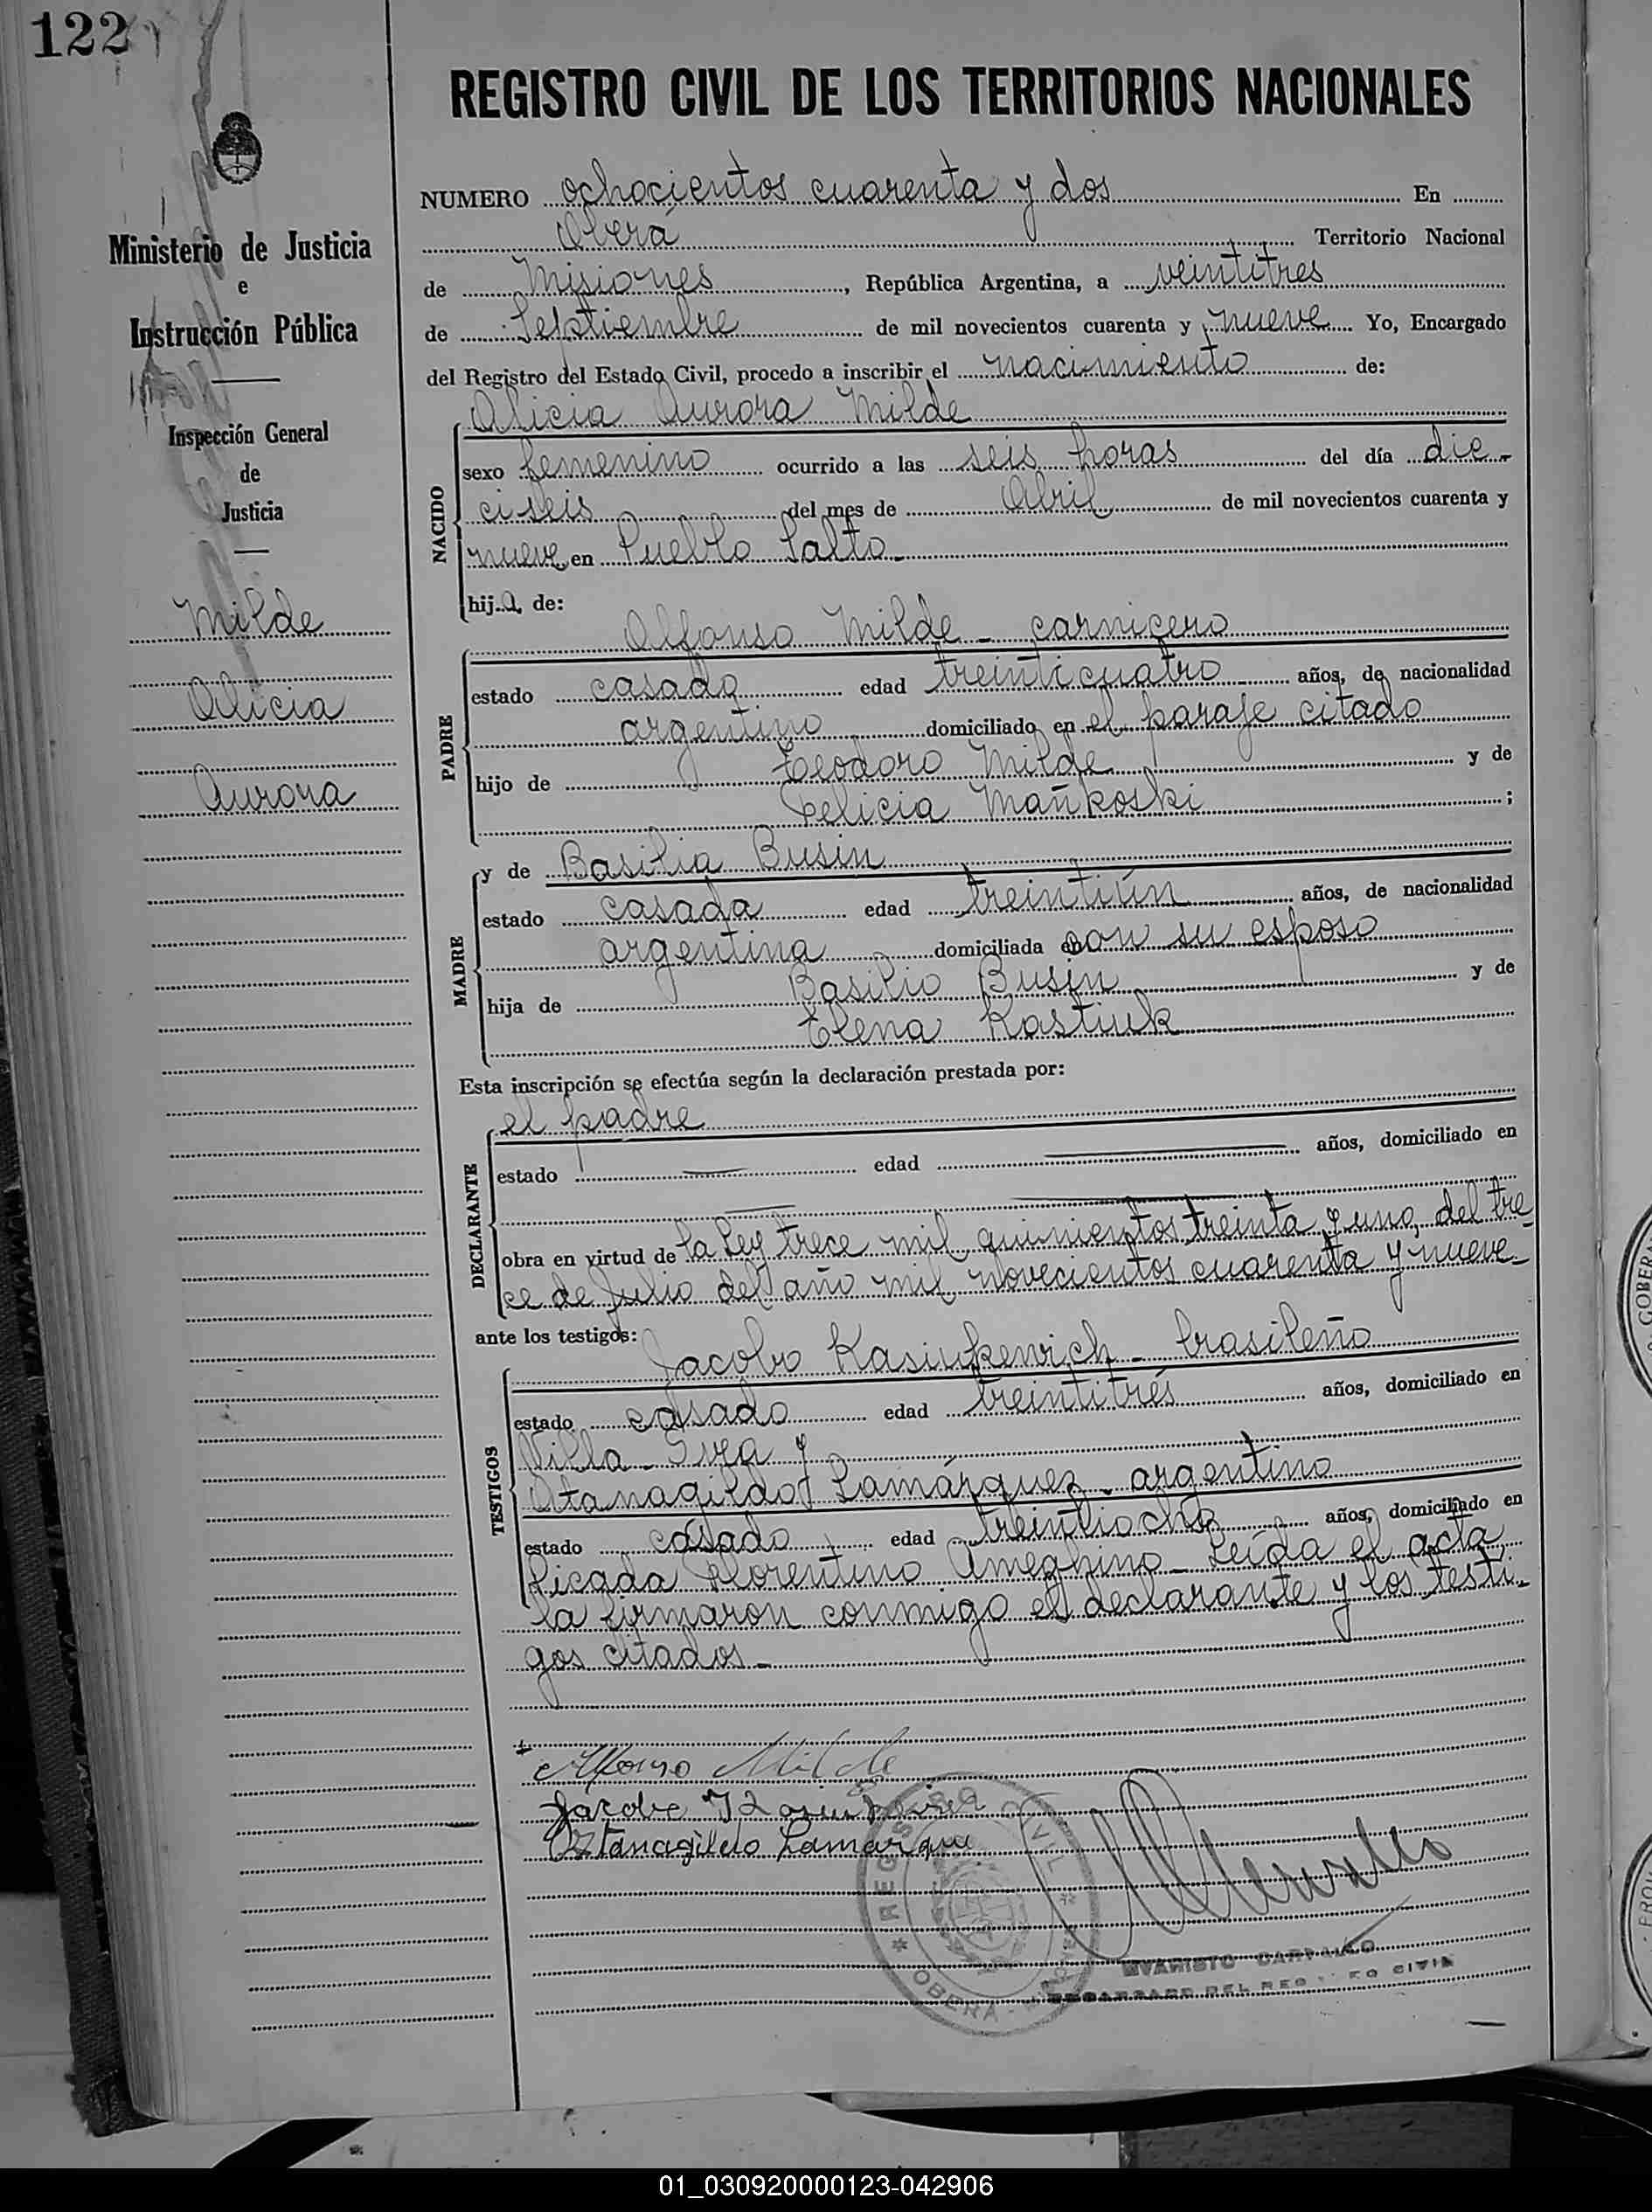 122
REGISTRO CIVIL DE LOS TERRITORIOS NACIONALES
Ministerio de Justicia
e
Instrucción Pública
Inspección General
de
Justicia
Milde
Alicia
Aurora
NUMERO ochocientos cuarenta y dos En
Oberá Territorio Nacional
de Misiones, República Argentina, a veintitres
de Septiembre de mil novecientos cuarenta y nueve Yo, Encargado
del Registro del Estado Civil, procedo a inscribir el nacimiento de:
Alicia Aurora Milde
NACIDO
sexo femenino ocurrido a las seis horas del día die-
ciseis del mes de Abril de mil novecientos cuarenta y
nueve en Pueblo Salto-
hija de:
PADRE
Alfonso Milde - carnicero
estado casado edad treinticuatro años, de nacionalidad
argentino domiciliado en el paraje citado
hijo de Teodoro Milde y de
Felicia Mañkoski;
MADRE
y de Basilia Busin
estado casada edad treintiún años, de nacionalidad
argentina domiciliada con su esposo
hija de Basilio Busin y de
Elena Kostiuk
Esta inscripción se efectúa según la declaración prestada por:
DECLARANTE
el padre
estado edad años, domiciliado en
obra en virtud de la Ley trece mil quinientos treinta y uno, del tre-
ce de Julio del año mil novecientos cuarenta y nueve-
ante los testigos:
TESTIGOS
Jacobo Kasiukewich - brasileño
estado casado edad treintitrés años, domiciliado en
Villa Svea y
Atanagildo Lamárquez - argentino
estado casado edad treintiocho años, domiciliado en
Picada Florentino Ameghino - Leída el acta,
la firmaron conmigo el declarante y los testi-
gos citados-
Alfonso Milde
REGISTRO CIVIL
OBERA
EVARISTO
ENCARGADO DEL REGISTRO CIVIL
01_030920000123-042906